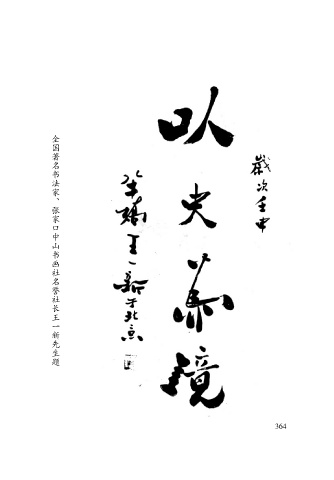 歲次壬申
以史為鏡
王一新于北京
全国著名书法家、张家口中山书画社名誉社长王一新先生题
364